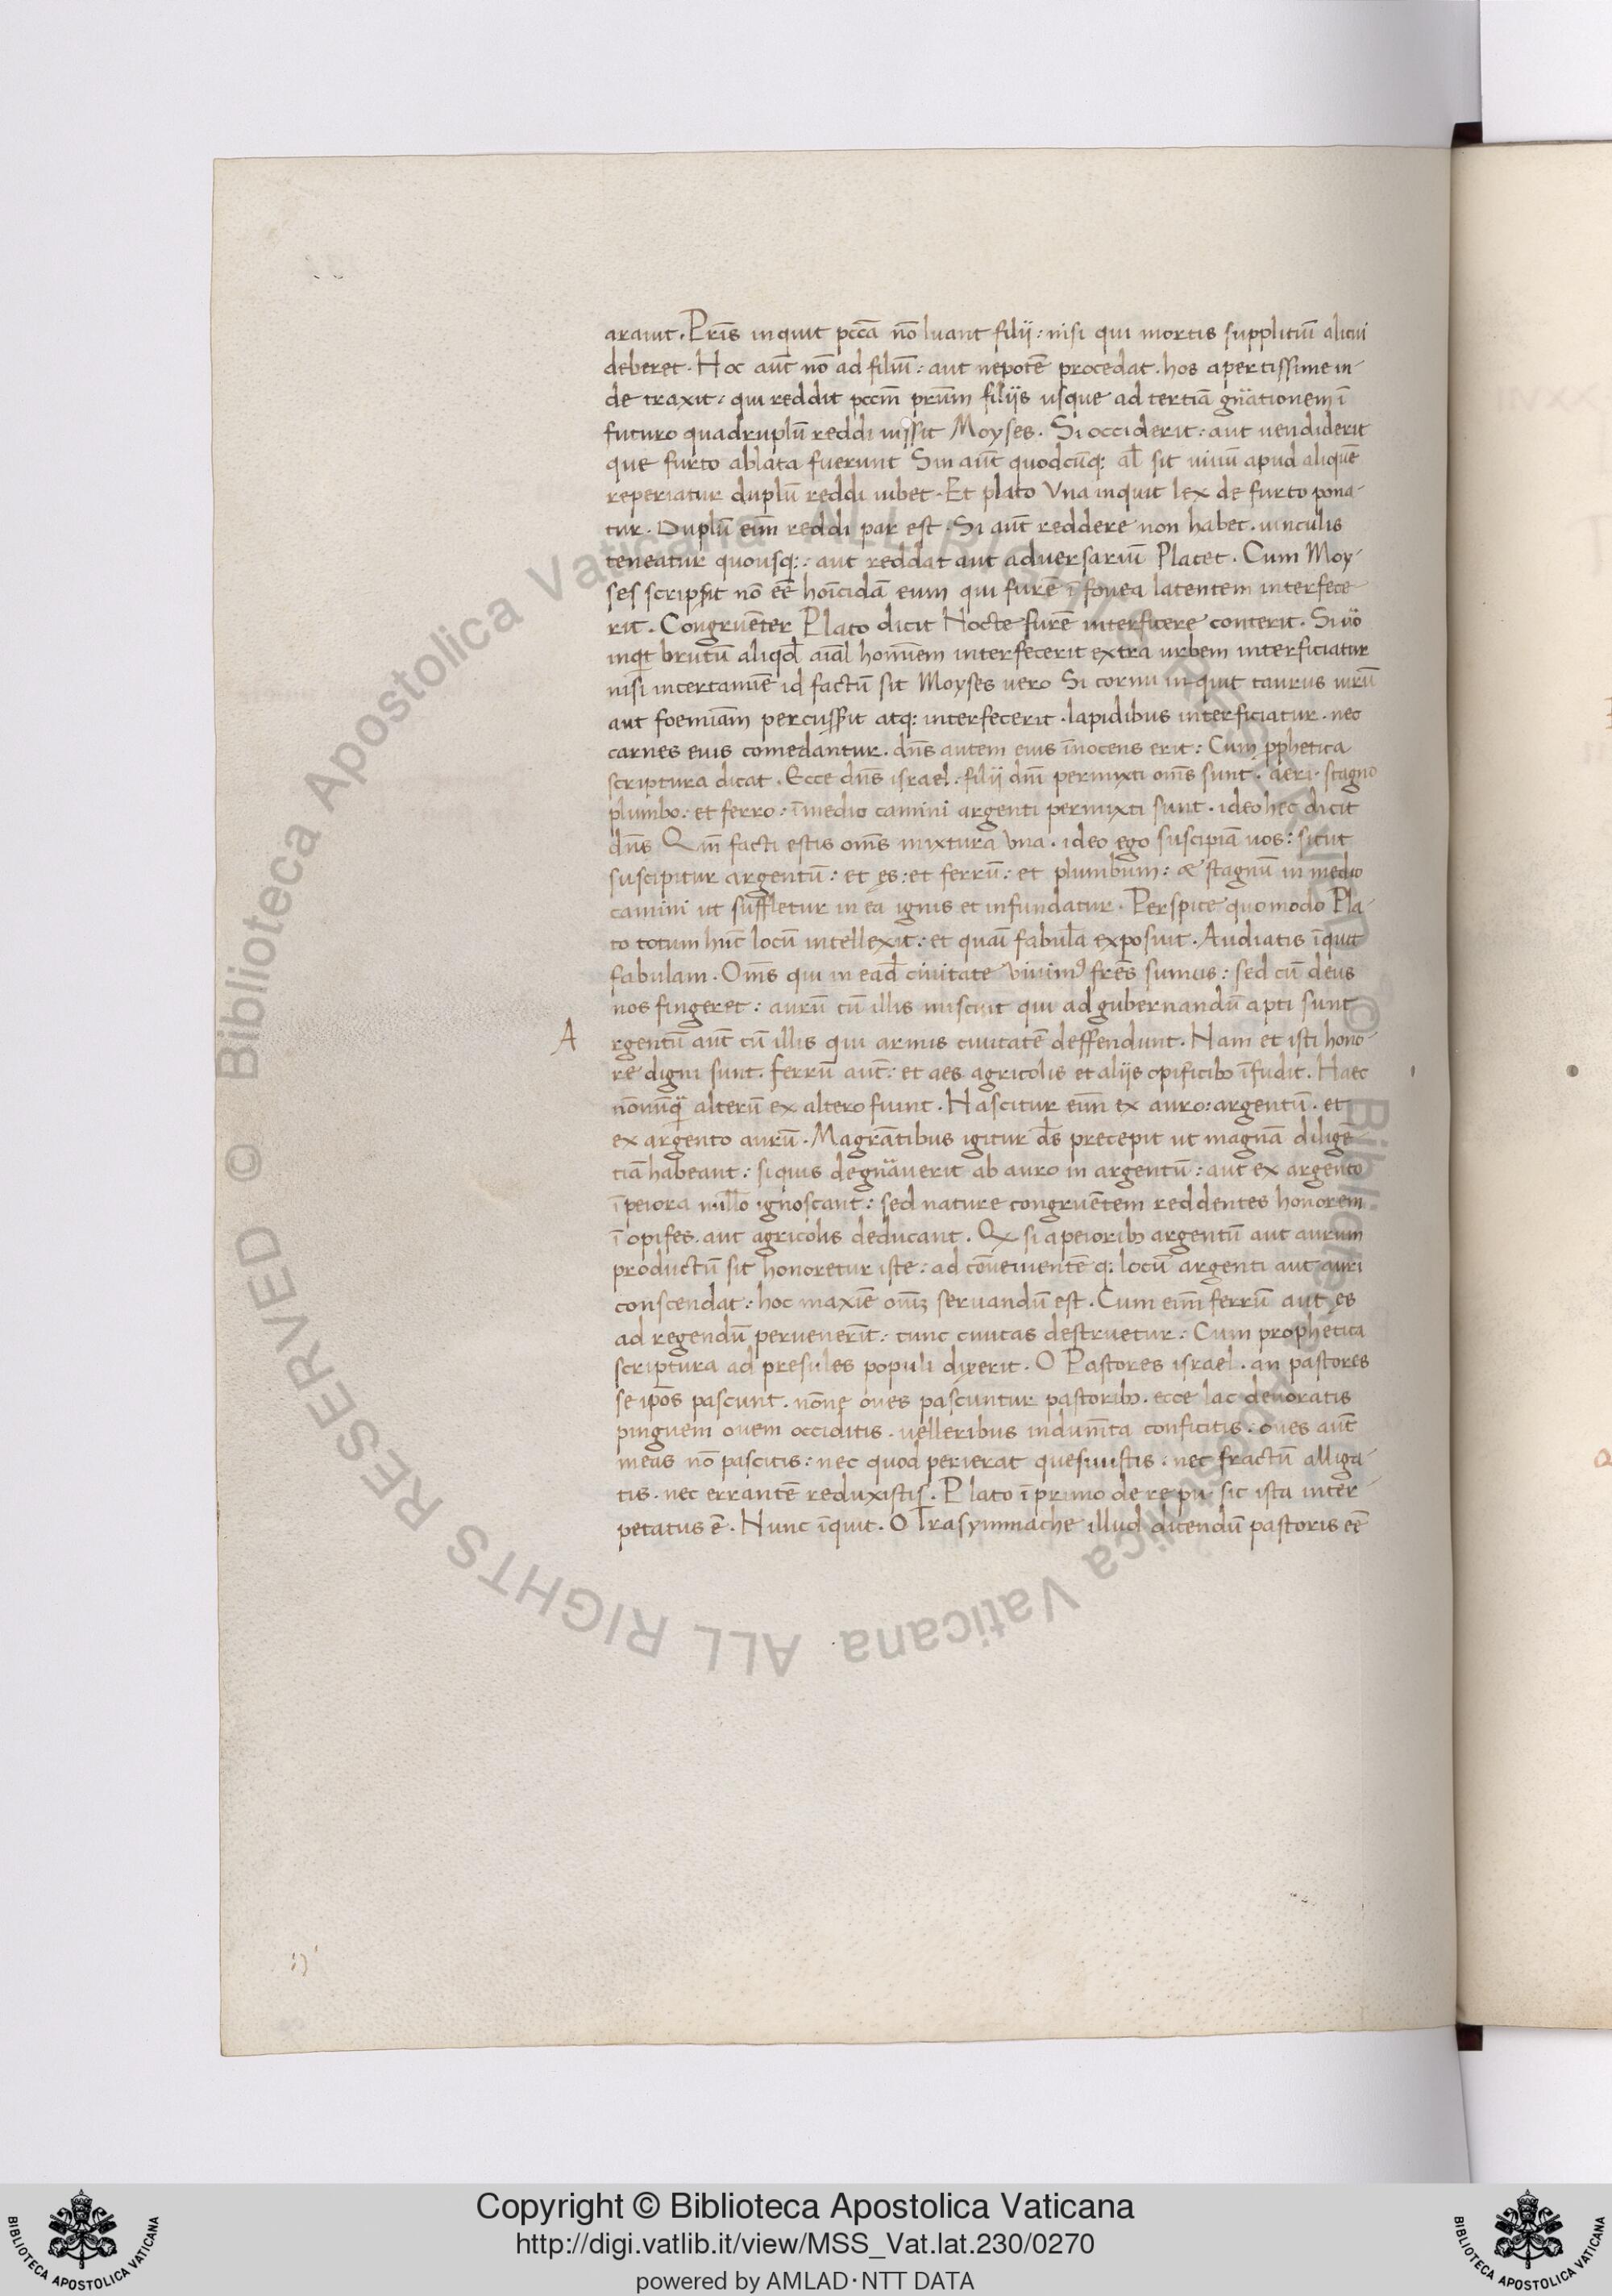 arauit. Pr̄is inquit pcc̄ā nō luant filij: nisi qui mortis supplitiū alicui
deberet. Hoc aūt nō ad filiū: aut nepotē procedat. hos apertissime in-
de traxit: qui reddit pcc̄m pr̄um filijs usque ad tertiā gn̄ationem ī
futuro quadruplū reddi iussit Moyses. Si occiderit: aut uendiderit
que furto ablata fuerunt Sin aūt quodcūq; al̄ sit uiuū apud aliquē
reperiatur duplū reddi iubet. Et plato Vna inquit lex de furto pona-
tur. Duplū eim̄ reddi par est. Si aūt reddere non habet. uinculis
teneatur quousq;: aut reddat aut aduersariū Placet. Cum Moy-
ses scripsit nō eē hoīcidā eum qui furē ī fouea latentem interfece
rit. Congruēter Plato dicit Nocte furē interficere conterit. Si uō
inqt brutū aliqd̄ aīal hominem interfecerit extra urbem interficiatur
nisi incertamīe id factū sit Moyses uero Si cornu inquit taurus uirū
aut foemīam percussit atq; interfecerit. lapidibus interficiatur. nec
carnes euis comedantur. dn̄s autem eius īnocens erit: Cum pphetica
scriptura dicat. Ecce dn̄s israel: filij dn̄i permixti om̄s sunt. aeri. stagno
plumbo: et ferro: ī medio camini argenti permixti sunt. ideo hec dicit
dn̄s Qm̄ facti estis om̄s mixtura vna. ideo ego suscipiā uos: sicut
suscipitur argentū: et es: et ferrū: et plumbum: & stagnū in medio
camini ut suffletur in ea ignis et infundatur. Perspice quomodo Pla-
to totum hūc locū intellexit: et quāī fabula exposuit. Audiatis īquit
fabulam. Om̄s qui in ead̄ ciuitate viuim9 fres̄ sumus: sed cū deus
nos fingeret: aurū cū illis miscuit qui ad gubernandū apti sunt
A rgentū aūt cū illis qui armis ciuitatē deffendunt. Nam et isti hono-
re digni sunt. ferrū aūt: et aes agricolis et alijs opificibꝫ īfudit. Haec
nōnūq̄ alterū ex altero fiunt. Nascitur eim̄ ex auro: argentū. et
ex argento aurū. Magrātibus igitur ds̄ precepit ut magnā diligē
tiā habeant: si quis degn̄auerit ab auro in argentū: aut ex argento
ī peiora nullo ignoscant: sed nature congruētem reddentes honorem
ī opifes. aut agricolis deducant. Qꝫ si a peioribꝫ argentū aut aurum
productū sit honoretur iste: ad cōuenientē q; locū argenti aut auri
conscendat: hoc maxīe om̄ꝫ seruandū est. Cum eim̄ ferrū aut es
ad regendū peruenerīt: tunc ciuitas destruetur: Cum prophetica
scriptura ad presules populi dixerit. O Pastores israel. an pastores
se ip̄os pascunt. nōne oues pascuntur pastoribꝫ. ecce lac deuoratis
pinguem ouem occiditis. uelleribus indum̄ta conficitis: oues aūt
meas nō pascitis: nec quod perierat quesiuistis: nec fractū alliga-
tis. nec errantē reduxistis. Plato ī primo de re pu. sic ista inter-
petatus ē. Nunc īquit. O Trasymmache illud dicendū pastoris eē
Copyright © Biblioteca Apostolica Vaticana
http://digi.vatlib.it/view/MSS_Vat.lat.230/0270
powered by AMLAD·NTT DATA
BIBLIOTECA APOSTOLICA VATICANA
BIBLIOTECA APOSTOLICA VATICANA
© Biblioteca Apostolica Vaticana ALL RIGHTS RESERVED